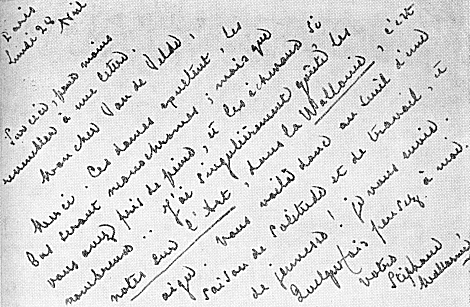 Paris
Lundi 28 Avril
Surcis, pour moins
ressembler à une lettre.
Mon cher Van de Velde,
Merci. Ces dames exultent, les
bas seront monochromes ; mais que
vous avez près de pieux, et les échevaux si
nombreux. J'ai singulièrement goûté, les
notes sur l'Art, dans la Wallonie, c'est
aigu. Vous voilà donc au seuil d'une
saison de solitude et de travail, et
de jeunesse ! je vous envie.
Quelquefois pensez à moi.
Votre
Stéphane
Mallarmé